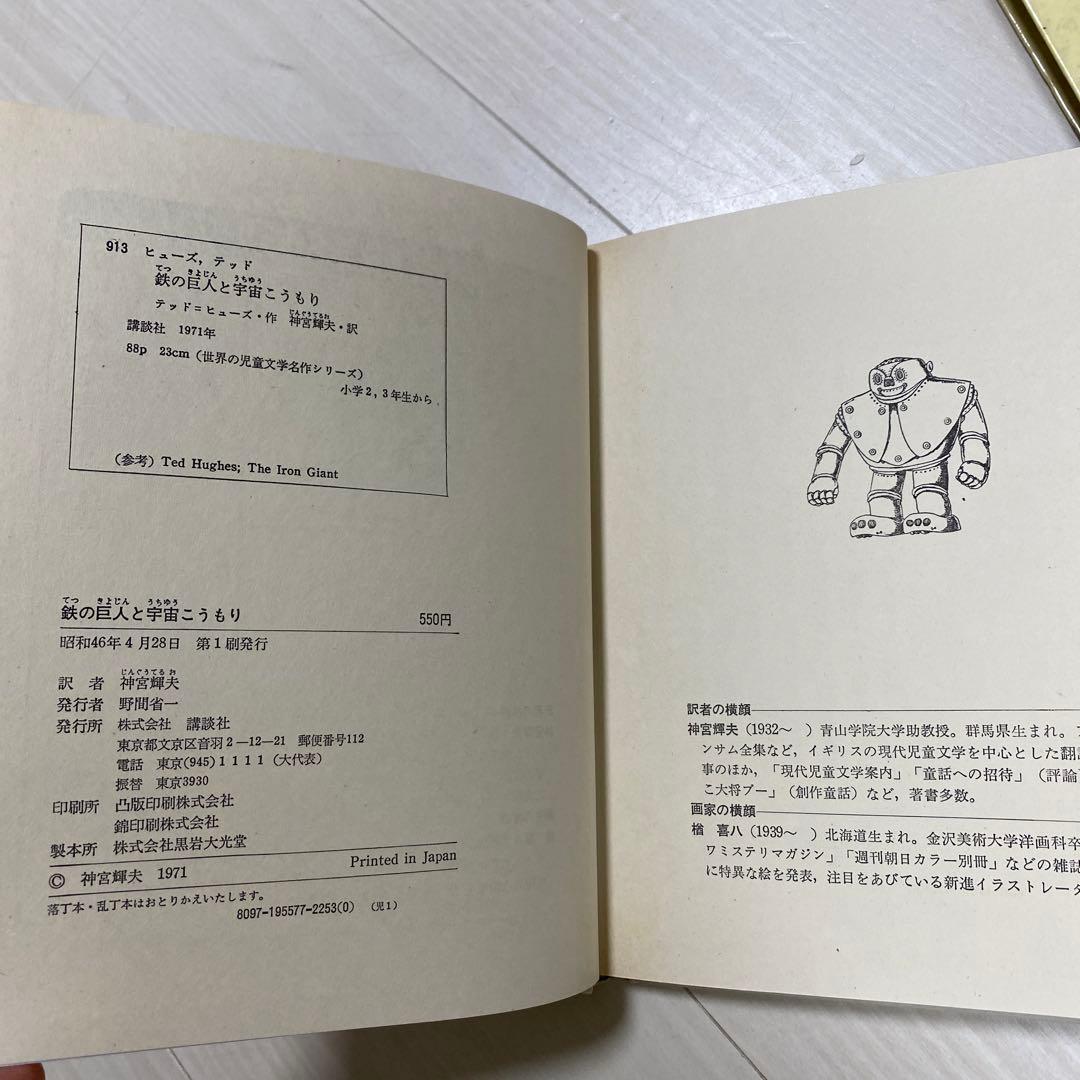 913 ヒューズ,テッド
てつ きよじん うちゆう
鉄の巨人と宇宙こうもり
じんぐうてるお
テッド=ヒューズ・作 神宮輝夫・訳
講談社 1971年
88p 23cm(世界の児童文学名作シリーズ)
小学2,3年生から
(参考) Ted Hughes; The Iron Giant
てつ きよじん うちゆう
鉄の巨人と宇宙こうもり 550円
昭和46年4月28日 第1刷発行
じんぐうてるお
訳者 神宮輝夫
発行者 野間省一
発行所 株式会社 講談社
東京都文京区音羽2-12-21 郵便番号112
電話 東京(945)1111(大代表)
振替 東京3930
印刷所 凸版印刷株式会社
錦印刷株式会社
製本所 株式会社黒岩大光堂
Printed in Japan
© 神宮輝夫 1971
落丁本・乱丁本はおとりかえいたします。
8097-195577-2253(0) (児1)
訳者の横顔
神宮輝夫(1932~ )青山学院大学助教授。群馬県生まれ。
ンサム全集など,イギリスの現代児童文学を中心とした翻訳
事のほか,「現代児童文学案内」「童話への招待」(評論)
こ大将ブー」(創作童話)など,著書多数。
画家の横顔
楢 喜八(1939~ )北海道生まれ。金沢美術大学洋画科卒
ワミステリマガジン」「週刊朝日カラー別冊」などの雑誌
に特異な絵を発表,注目をあびている新進イラストレータ